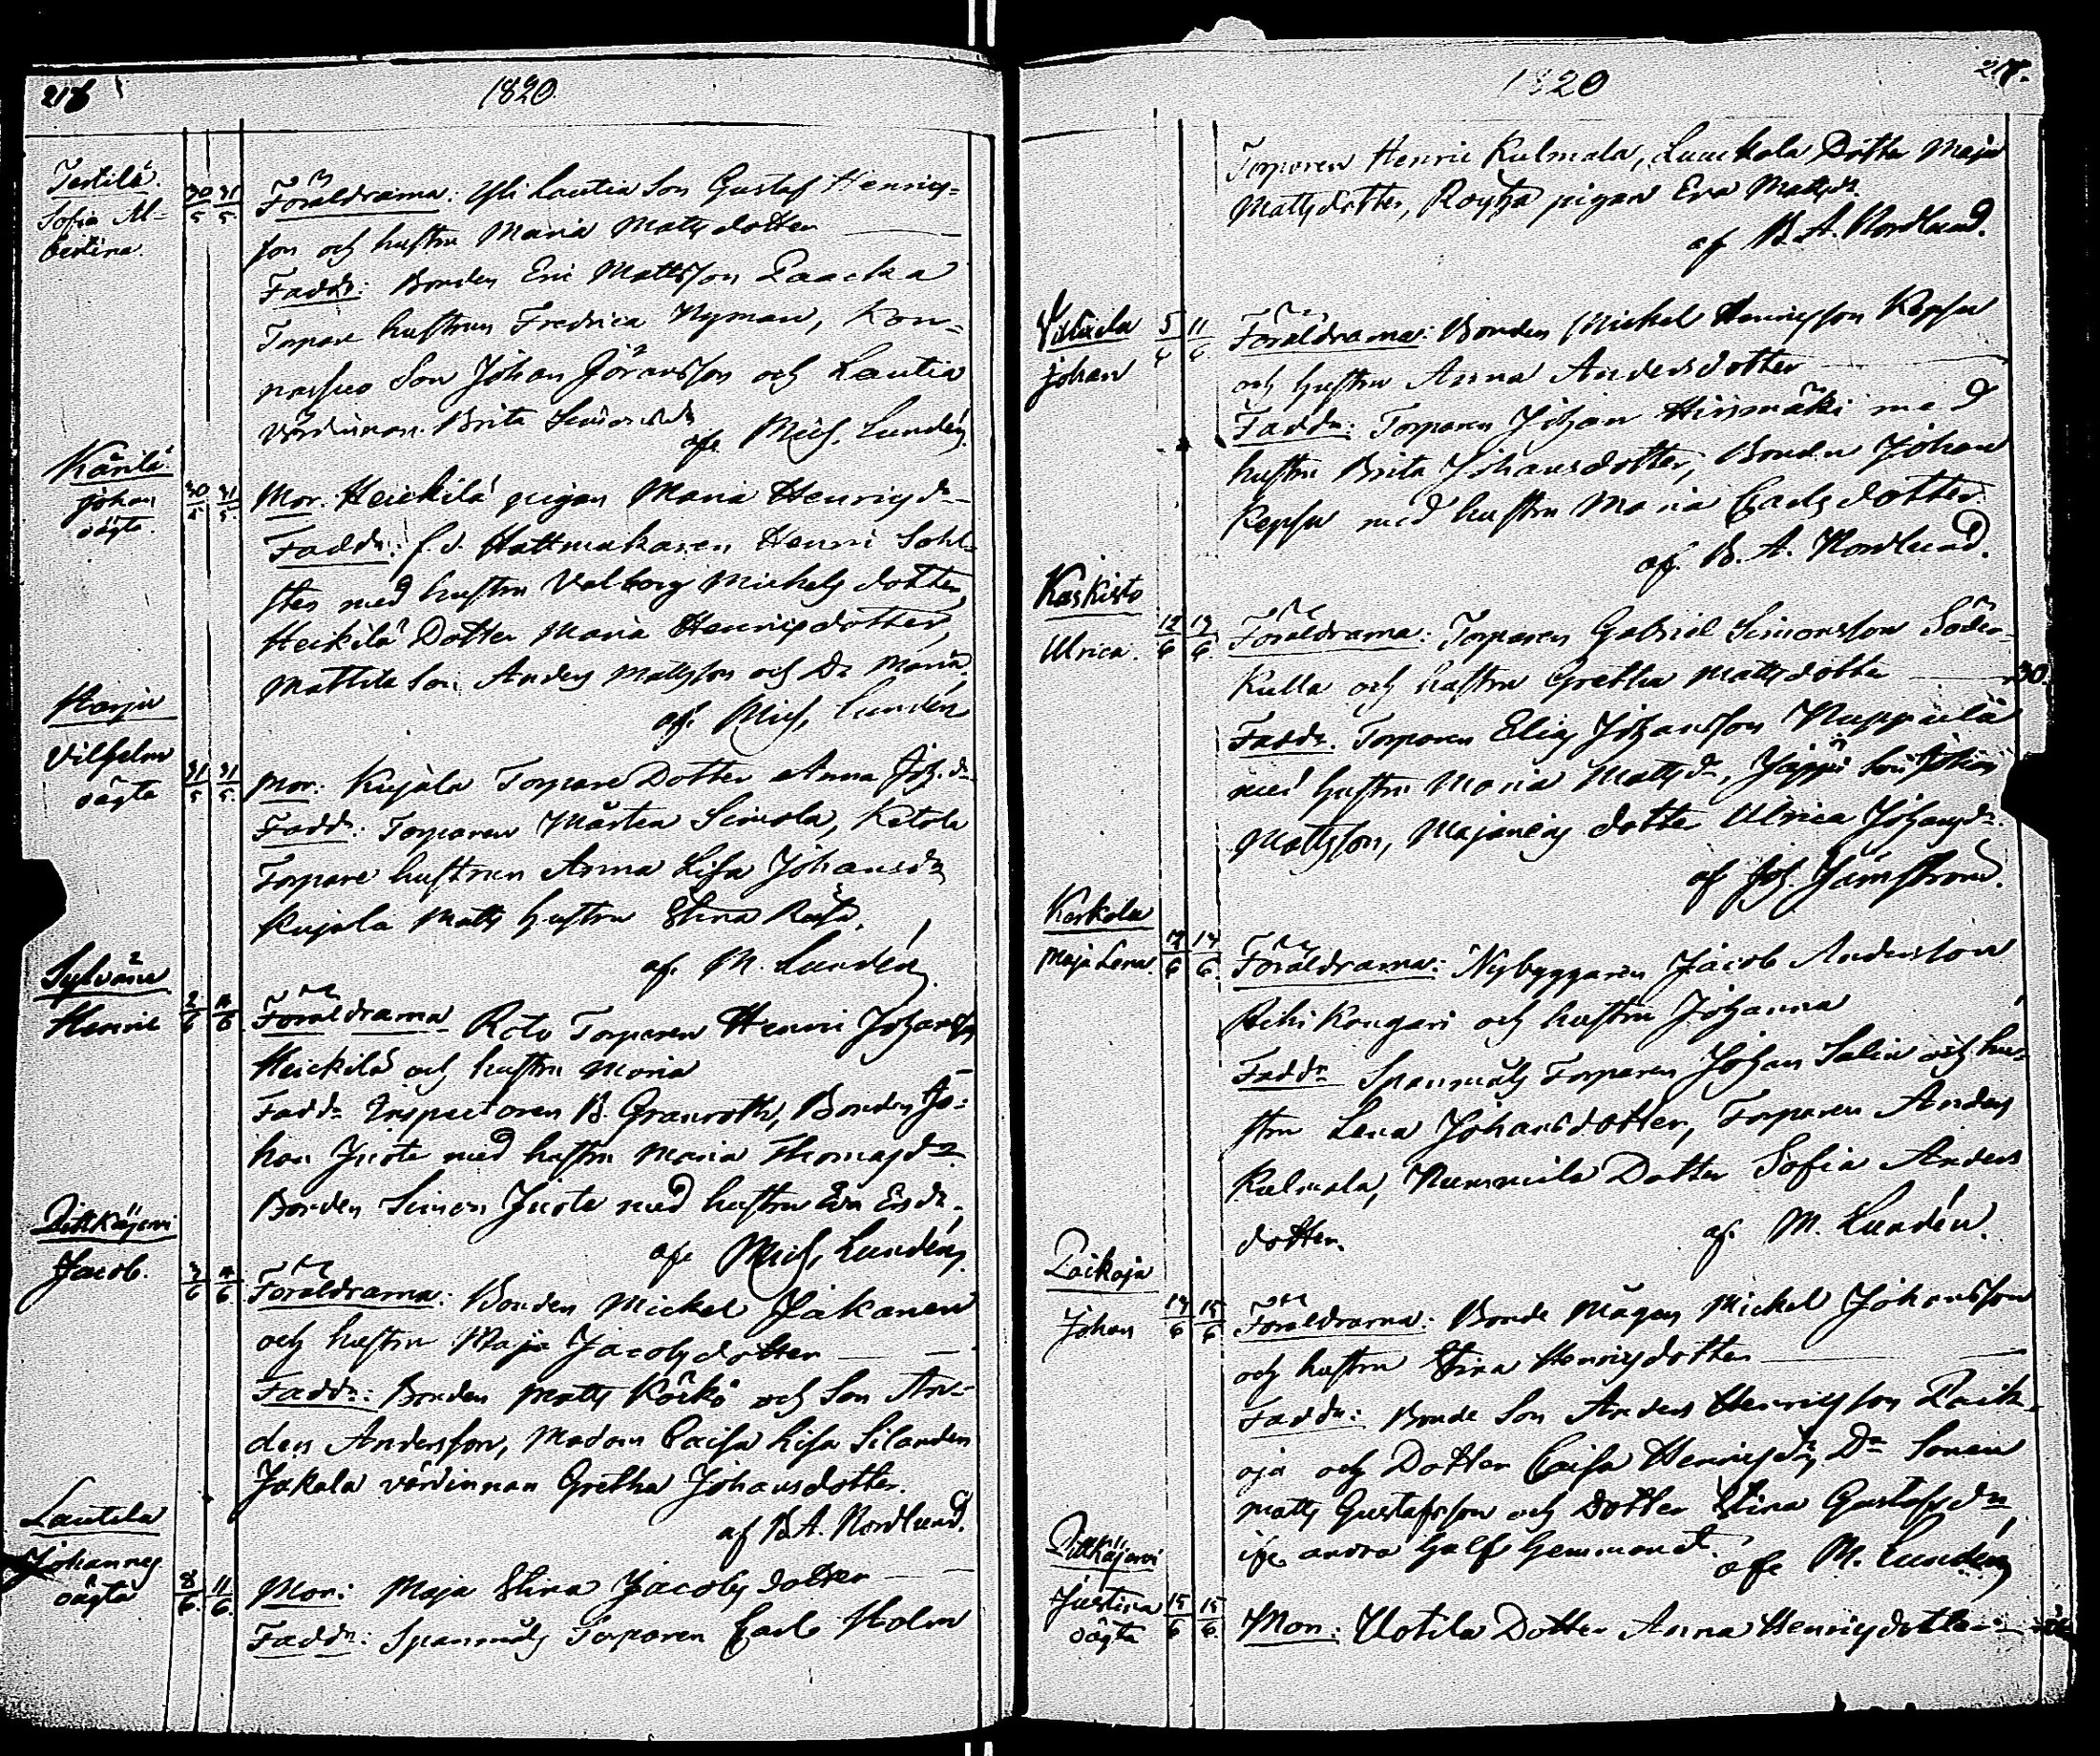 216
1820
Tertilä.
Sofia Al-
bertina.
30/5 31/5
Föräldrarna: Yli Lautia Son Gustaf Henrics-
son och hustru Maria Matts dotter
Faddr: Bonden Eric Mattsson Paacka
Torpare hustrun Fredrica Nyman, Kon-
Son Johan Göransson och Lautia
värdinnan Brita Simonsdr
af Mich. Lundén.
Kärilä.
Johan
oägta.
30/5 31/5
Mor. Heickilä pigan Maria Henricsdr
Faddr: f.d. Hattmakaren Henric Sohl-
sten med hustru Valborg Michels dotter,
Heickilä Dotter Maria Henricsdotter,
Mattila Son Anders Mattsson och Dr Maria.
af. Mich. Lundén
Harju
Vilhelm
oägta
31/5 31/5
Mor: Kujala Torpare Dotter Anna Joh.dr
Faddr: Torparen Mårten Simola, Ketola
Torpare hustrun Anna Lisa Johansdr
Kujala Matts hustru Stina
af. M. Lundén
Sylväne
Henric
2/6 4/6
Föräldrarna Rote Torparen Henric Johansson
Heickilä och hustru Maria
Faddr Inspectoren B. Granroth, Bonden Jo-
han Juote med hustru Maria Thomasdr
Bonden Simon Juote med hustru Eva Ersdr.
af Mich. Lundén.
Pittkäjervi
Jacob.
3/6 4/6
Föräldrarna: Bonden Mickel Jakanen
och hustru Maja Jacobsdotter
Faddr: Bonden Matts Köckö och Son An-
ders Andersson, Madam Caisa Lisa Silander
Jakala värdinnan Gretha Johansdotter.
af B.A. Nordlund.
Lautela
Johannes
oägta
8/6 11/6
Mor: Maja Stina Jacobsdotter
Faddr: Spanmåls Torparen Carl Holm
1820
217.
Torparen Henric Kulmala, Luuckala Dotter Maja
Mattsdotter, pigan Eva Mattsdr
af B.A. Nordlund.
Johan
5/6 11/6
Föräldrarna: Bonden Mickel Henricsson Repsu
och hustru Anna Andersdotter
Faddr: Torparen Johan Hiismäki med
hustru Brita Johansdotter, Bonden Johan
Repsu med hustru Maria Carls dotter
af. B. A. Nordlund.
Kaskisto
Ulrica.
12/6 13/6
Föräldrarna: Torparen Gabriel Simonsson Söder-
kulla och hustru Gretha Mattsdotter
30.
Faddr. Torparen Elias Johansson Nuppuilä
med hustru Maria Mattsdr, Jäppi Son Johan
Mattsson, Majaniny dotter Ulrica Johansdr.
af Joh. Jämström.
Karkola
Maja Lena.
12/6 14/6
Föräldrarna: Nybyggaren Jacob Andersson
Kongari och hustru Johanna
Faddr Spanmåls Torparen Johan Salin och hu-
stru Lena Johansdotter, Torparen Anders
Kulmala, Nummila Dotter Sofia Anders
dotter.
af. M. Lundén.
Paikoja
Johan
14/6 15/6
Föräldrarna: Bonde Mågen Mickel Johansson
och hustru Stina Henricsdotter
Faddr: Bonde Son Anders Henricsson Paik-
oja och Dotter Caisa Henricsdr, Dr Sonen
Matts Gustafsson och Dotter Stina Gustafsdr
ifr. andra Half Hemmanet.
af M. Lundén
Pittkäjervi
Justina
oägta
15/6 15/6
Mor: Uotila Dotter Anna Henricsdotter